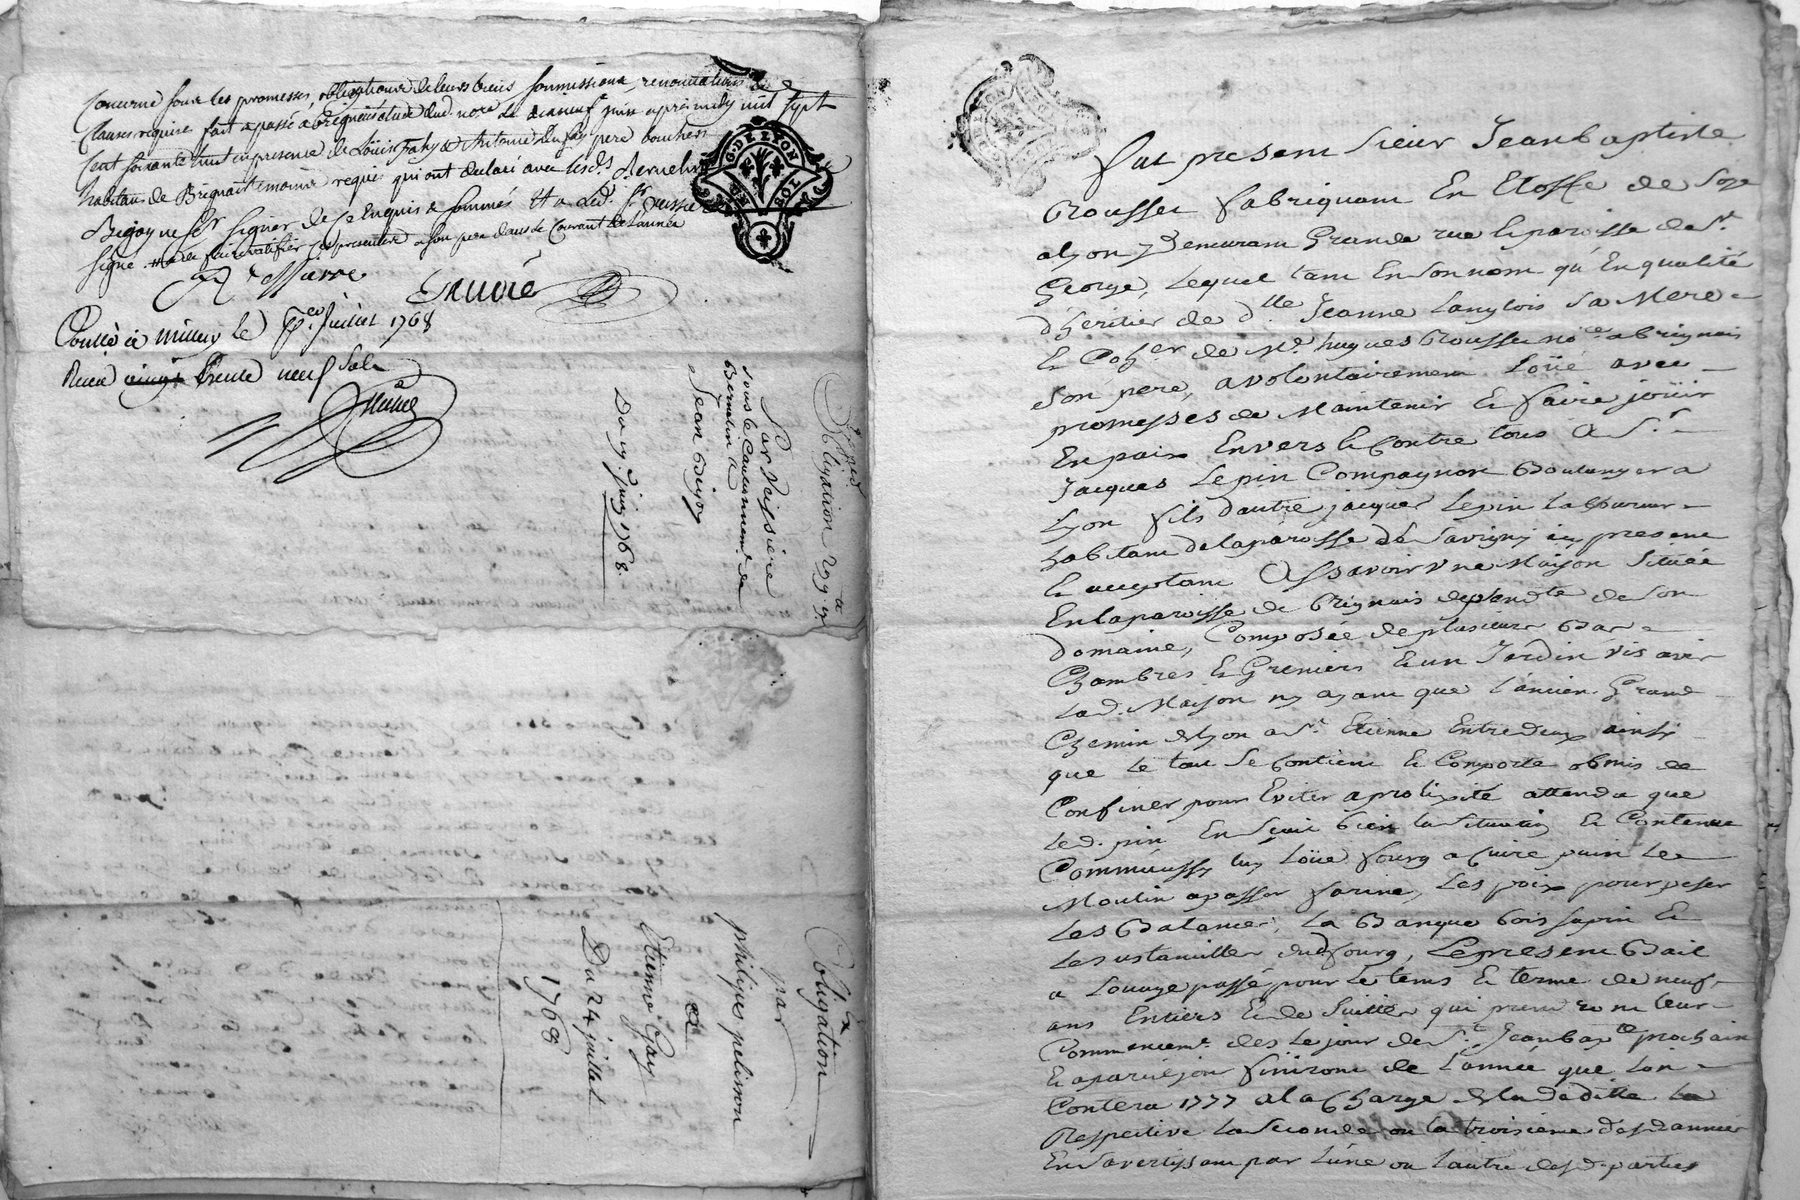 Concerne sous les promesses, obligations de leurs biens soumissions, renonciations &
Clauses requises fait & passé a Brignais étude dud. no.re le dixneuf juin après midy mil sept
Cent soixante huit en presence de Loüis & Antoine pere boucher
habitans de Brignais temoins requis qui ont declaré avec lesd.s Bernelin
Bigoy ne sçr signer de ce Enquis & sommés Et a led. s.r
signé
G. DE LYON
SOL
Grudré
Conllé à Millery le p.er Juillet 1768
Receu vingt trente neuf sols
Exped.
Obligation 299.
a
Par Veissiere
sous le Cautionnement de
Bernelin a
Jean Bigoy
Du 19.e juin 1768.
Obligation
par
philipes pelisson
a
Etienne Gay
Du 24 juillet
1768
Fut present Sieur Jean baptiste
Rousset fabriquant En Etoffe de Soye
a Lyon y Demeurant Grande rue & paroisse de St.
George, lequel tant En Son nom qu'En qualité
d'heritier de dlle Jeanne Langlois Sa Mere
& Coher de Me. hugues Rousset nore a brignais
Son pere, a volontairement Loüé avec
promesses de Maintenir & faire joüir
En paix Envers & Contre tous A Sr.
Jacques Lepin Compagnon Boulanger a
Lyon fils d'autre jacques Lepin Laboureur
habitant de la paroisse de Savigny icy present
& acceptant Assavoir une Maison Située
En la paroisse de Brignais dependte de Son
Domaine, Composée de plusieurs Bas
Chambres & Greniers & un Jardin vis avis
lad. Maison ny ayant que l'ancien Grand
Chemin de Lyon a St. Etienne Entredeux ainsi
que le tout Se Contient & Comporte obmis de
Confiner pour Eviter aprolixité attendu que
led. pin En Sçait bien la Situation & Contenue
Comm'aussy luy Loüe fourg a Cuire pain le
Moulin a passer farine, Les poix pour peser
Les Balances, La Banque bois sapin &
Les ustancilles dud fourg, Le present Bail
a Louage passé pour le tems & terme de neuf
ans Entiers & de Suitte qui prendront leur
Commencemt. des le jour de St. Jean baptte prochain
& a pareil jour finiront de l'année que l'on
Contera 1777 a la Charge de la deditte
Respective la Seconde ou la troisieme desd année
En Savertissant par l'une ou l'autre desd. parties